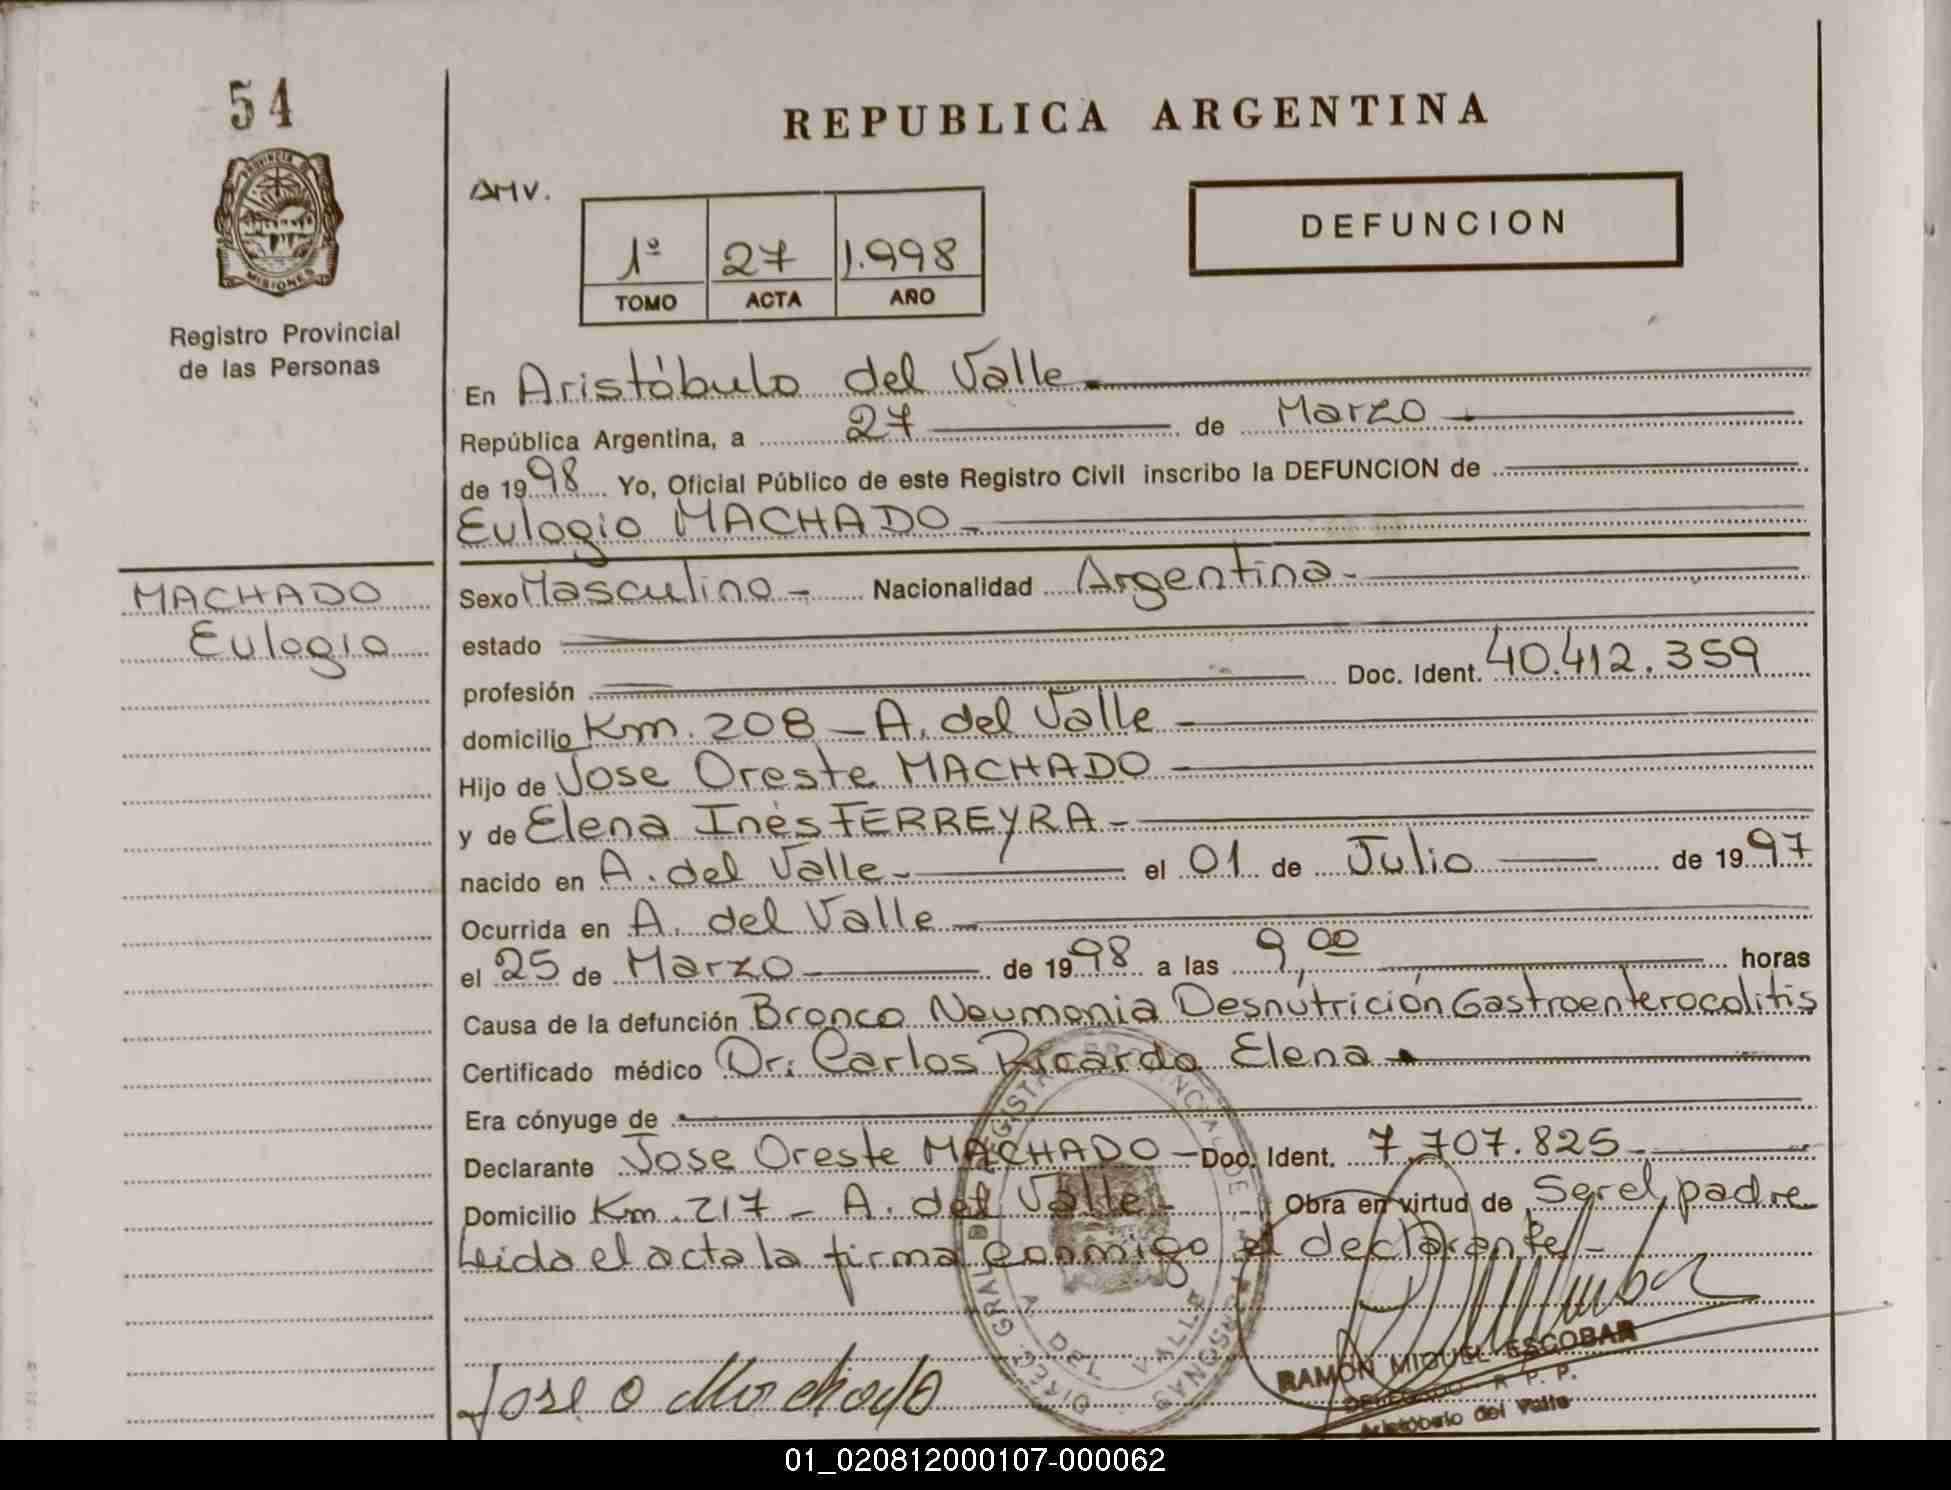 54
REPUBLICA ARGENTINA
PROVINCIA DE
MISIONES
Registro Provincial
de las Personas
AMV.
1º 27 1.998
TOMO ACTA AÑO
DEFUNCION
En Aristóbulo del Valle
República Argentina, a 27 de Marzo
de 1998 Yo, Oficial Público de este Registro Civil inscribo la DEFUNCION de
Eulogio MACHADO
MACHADO
Eulogio
Sexo Masculino - Nacionalidad Argentina
estado
profesión Doc. Ident. 40.412.359
domicilio Km. 208 - A. del Valle
Hijo de Jose Oreste MACHADO
y de Elena Inés FERREYRA
nacido en A. del Valle el 01 de Julio de 1997
Ocurrida en A. del Valle
el 25 de Marzo de 1998 a las 9,00 horas
Causa de la defunción Bronco Neumonia Desnutrición Gastroenterocolitis
Certificado médico Dr: Carlos Ricardo Elena
Era cónyuge de
Declarante Jose Oreste MACHADO - Doc. Ident. 7.707.825
Domicilio Km. 217 - A. del Valle - Obra en virtud de Ser el padre
Leida el acta la firma conmigo el declarante -
Jose O Machado
RAMON MIGUEL ESCOBAR
DELEGADO R. P. P.
Aristóbulo del Valle
01_020812000107-000062